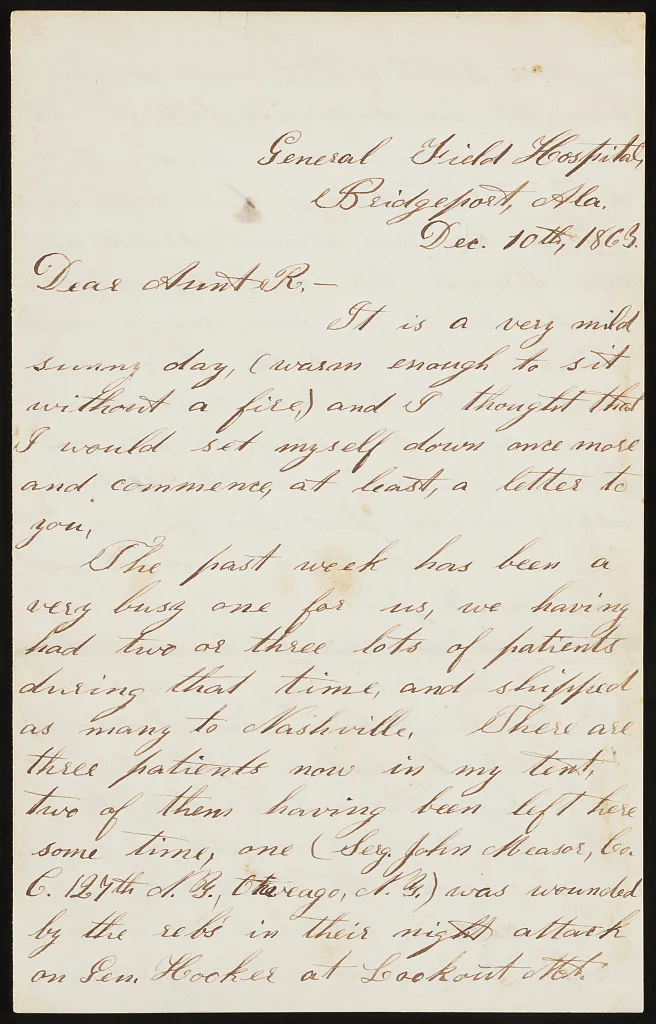 General Field Hospital,
Bridgeport, Ala.
Dec. 10th, 1863.
Dear Aunt R.,—
It is a very mild
sunny day, (warm enough to sit
without a fire,) and I thought that
I would set myself down once more
and commence, at least, a letter to
you.
The past week has been a
very busy one for us, we having
had two or three lots of patients
during that time, and shipped
as many to Nashville. There are
three patients now in my tent,
two of them having been left here
some time, one (Serg. John Measor, Co.
C. 127th N.Y., N.Y.) was wounded
by the rebs in their night attack
on Gen. Hooker at Lookout Mt.